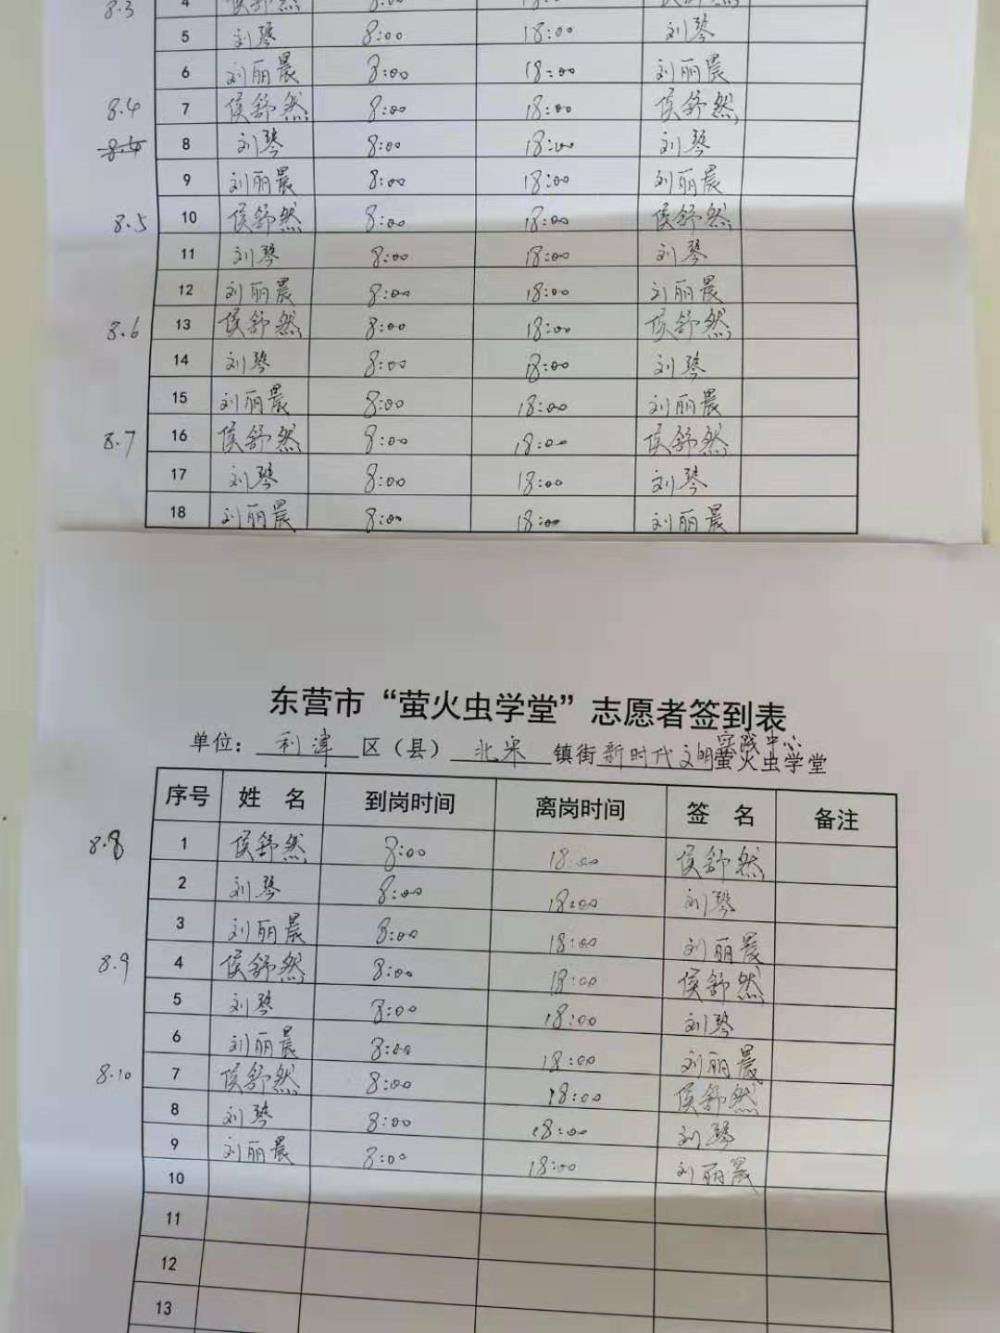 8.3 4 侯舒然 8:00 18:00 侯舒然
5 刘琴 8:00 18:00 刘琴
6 刘丽晨 8:00 18:00 刘丽晨
8.4 7 侯舒然 8:00 18:00 侯舒然
8 刘琴 8:00 18:00 刘琴
9 刘丽晨 8:00 18:00 刘丽晨
8.5 10 侯舒然 8:00 18:00 侯舒然
11 刘琴 8:00 18:00 刘琴
12 刘丽晨 8:00 18:00 刘丽晨
8.6 13 侯舒然 8:00 18:00 侯舒然
14 刘琴 8:00 18:00 刘琴
15 刘丽晨 8:00 18:00 刘丽晨
8.7 16 侯舒然 8:00 18:00 侯舒然
17 刘琴 8:00 18:00 刘琴
18 刘丽晨 8:00 18:00 刘丽晨
东营市“萤火虫学堂”志愿者签到表
单位：利津区（县）北宋镇街新时代文明实践中心萤火虫学堂
序号 姓 名 到岗时间 离岗时间 签 名 备注
8.8 1 侯舒然 8:00 18:00 侯舒然
2 刘琴 8:00 18:00 刘琴
3 刘丽晨 8:00 18:00 刘丽晨
8.9 4 侯舒然 8:00 18:00 侯舒然
5 刘琴 8:00 18:00 刘琴
6 刘丽晨 8:00 18:00 刘丽晨
8.10 7 侯舒然 8:00 18:00 侯舒然
8 刘琴 8:00 18:00 刘琴
9 刘丽晨 8:00 18:00 刘丽晨
10
11
12
13